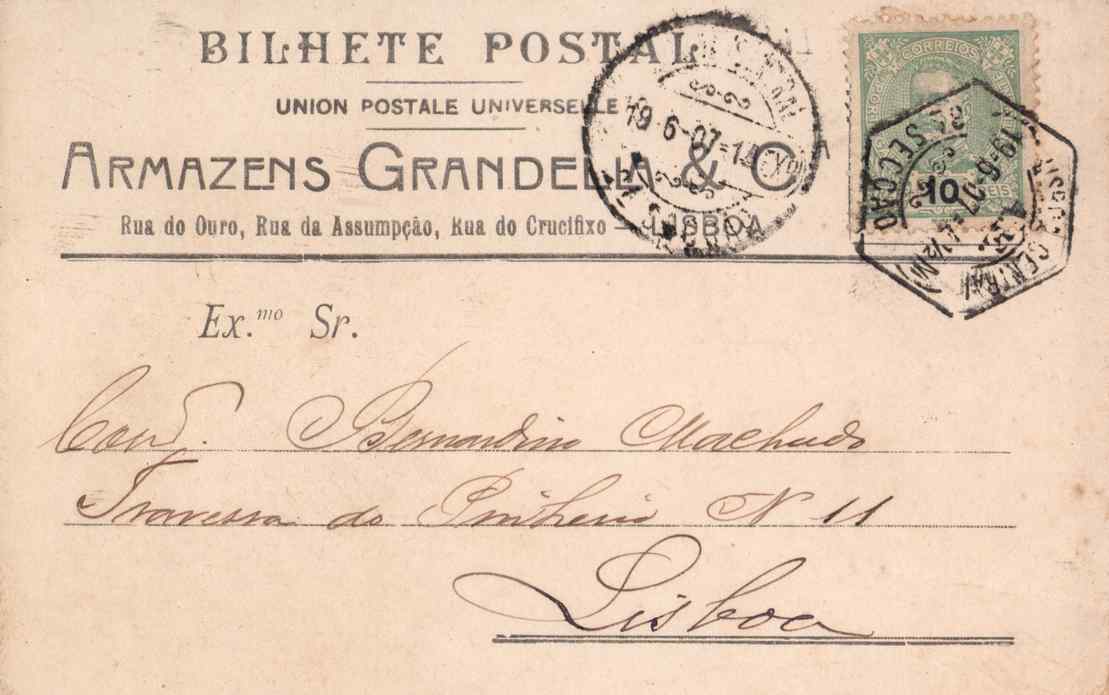 BILHETE POSTAL
UNION POSTALE UNIVERSELLE
ARMAZENS GRANDELLA & C.ª
Rua do Ouro, Rua da Assumpção, Rua do Crucifixo — LISBOA
CORREIOS
10 REIS
19-6-07
CENTRAL
19-6-07
2ª SECÇÃO
LISBOA CENTRAL
Ex.mo Sr.
Cons. Bernardino Machado
Travessa do Pinheiro N 11
Lisboa